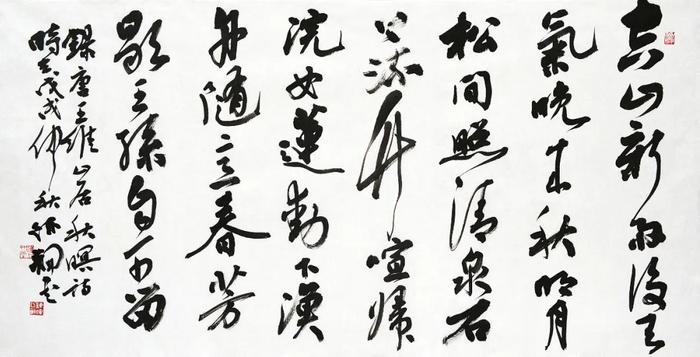 空山新雨後天
氣晚來秋明月
松間照清泉石
上流竹喧歸
浣女蓮動下漁
舟隨意春芳
歇王孫自可留
錄唐王維山居秋暝詩
時在戊戌仲秋